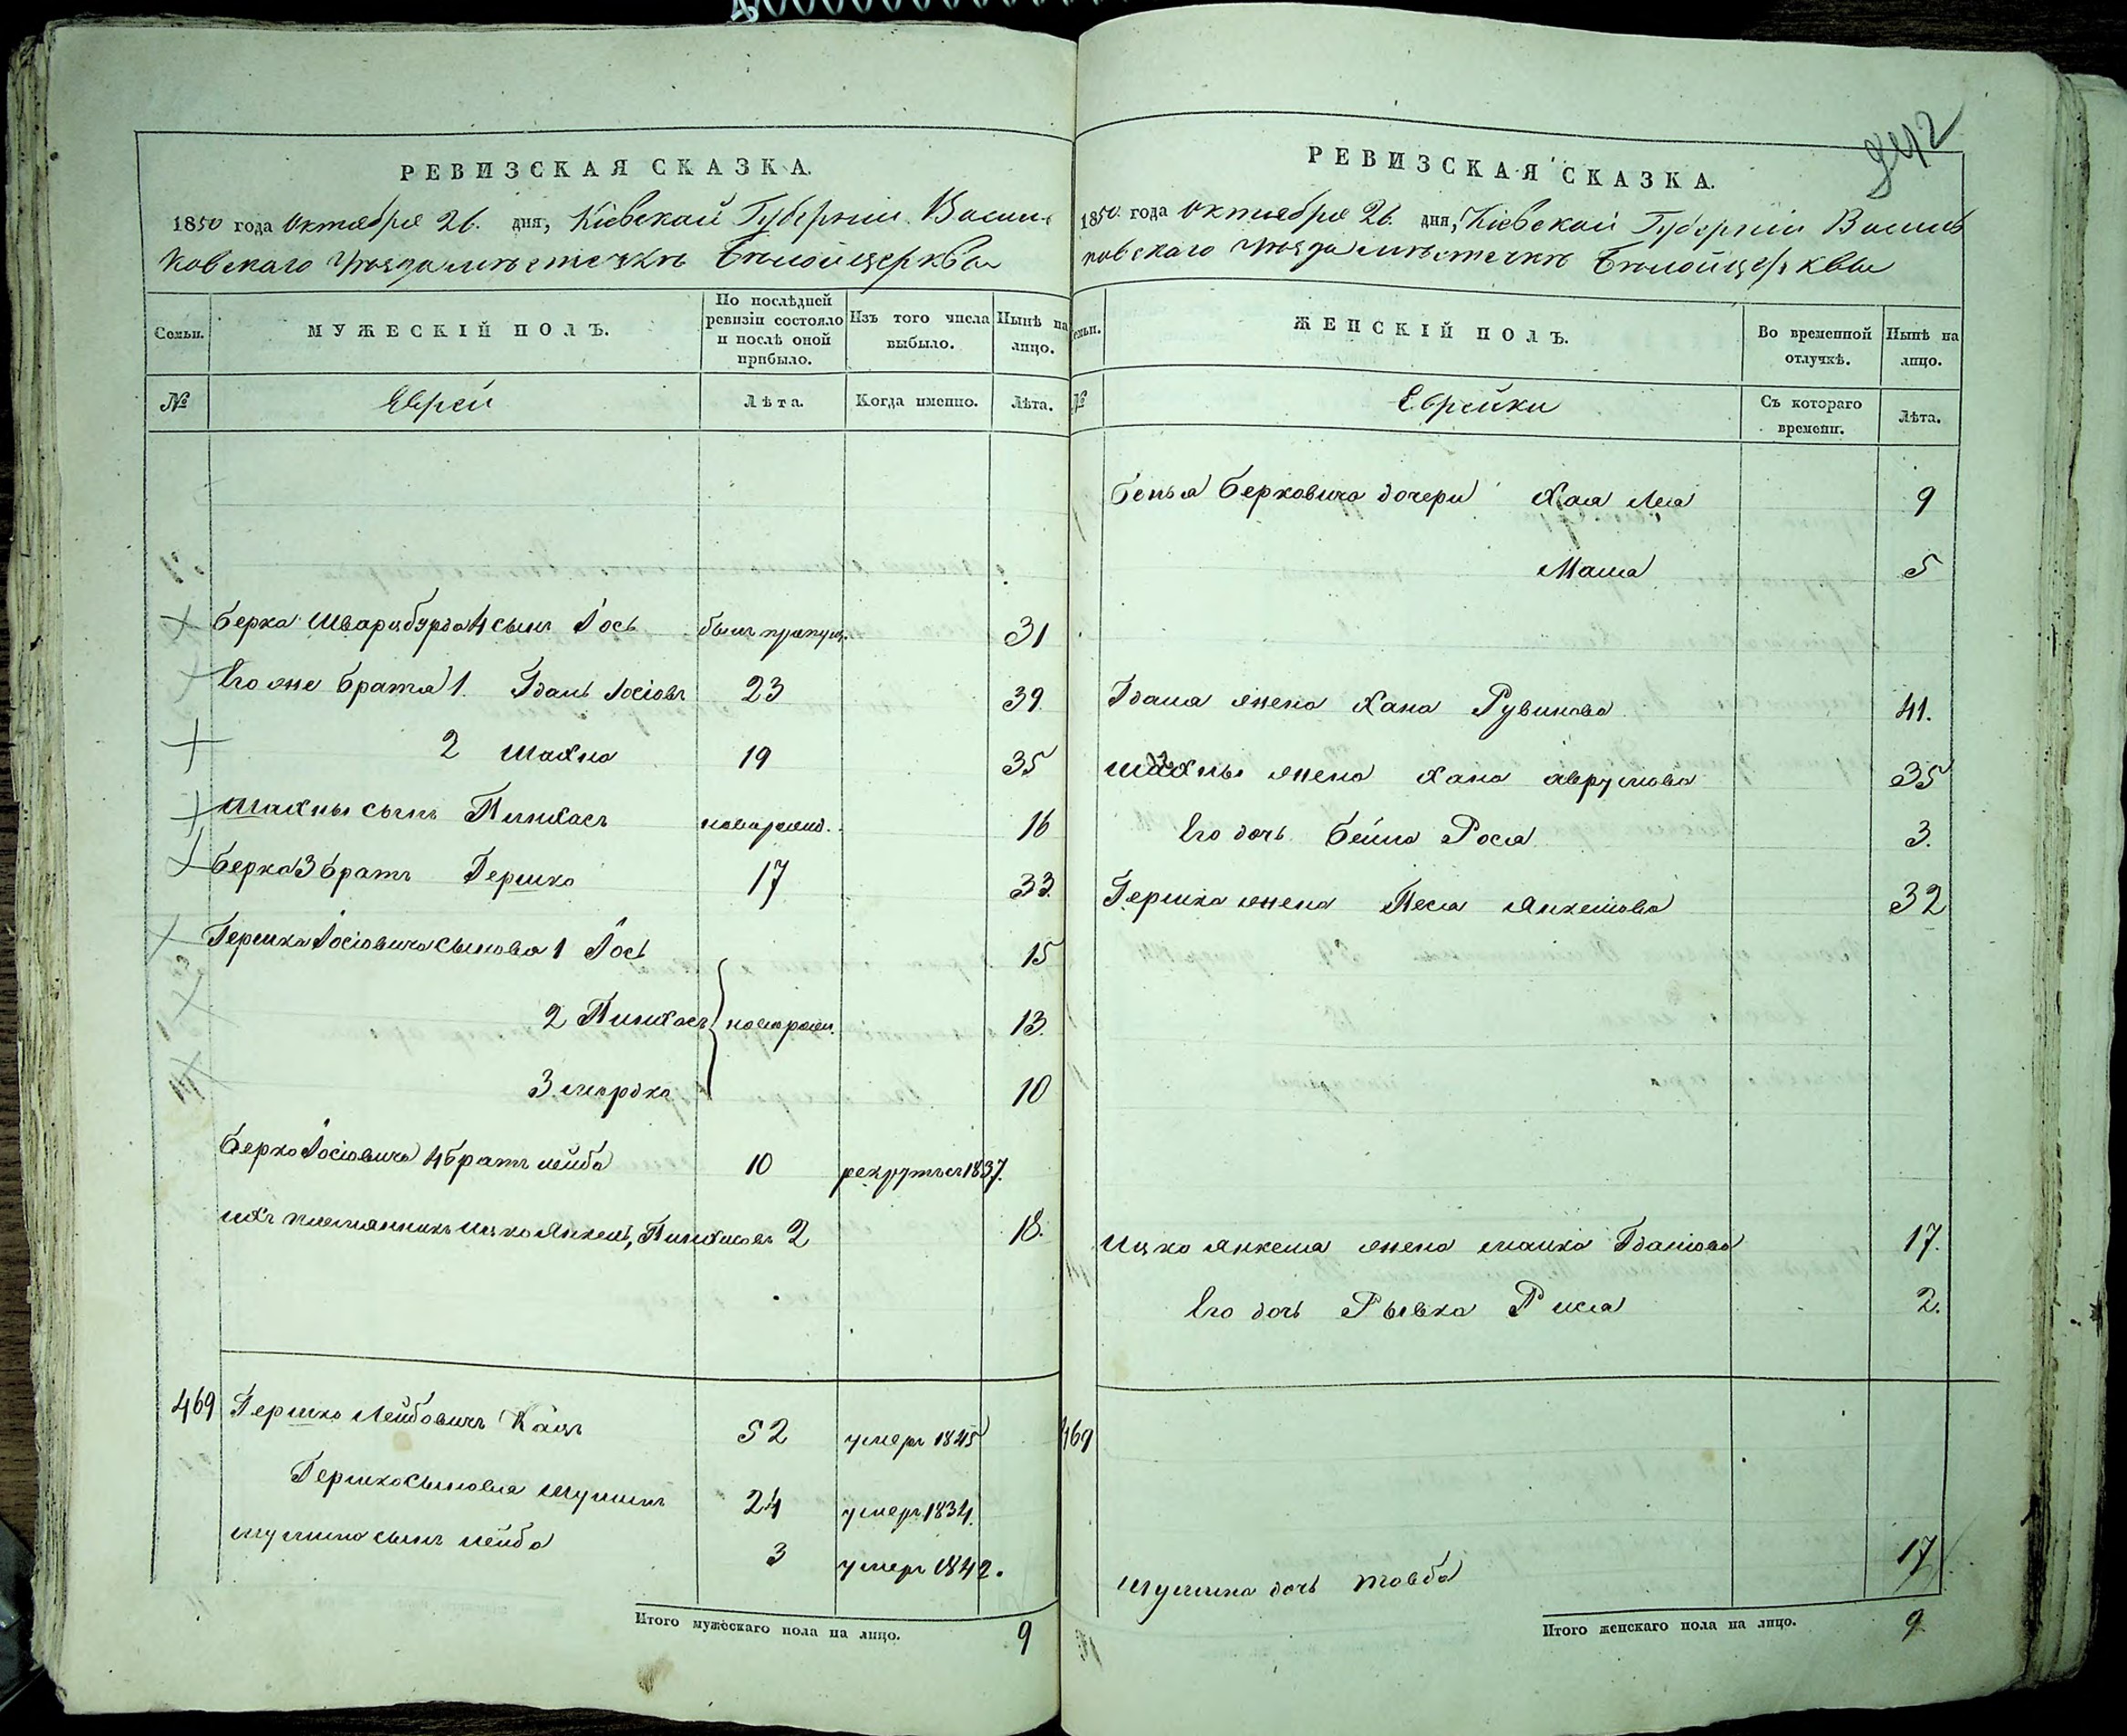 РЕВИЗСКАЯ СКАЗКА.
1850 года Октября 26. дня, Кіевской Губерніи Василь-
ковскаго уѣзда мѣстечкѣ Бѣлойцерквы
Семьи.
МУЖЕСКІЙ ПОЛЪ.
По послѣдней ревизіи состояло и послѣ оной прибыло.
Изъ того числа выбыло.
Нынѣ на лицо.
№
Еврей
Лѣта.
Когда именно.
Лѣта.
Берка Шварцбурда 4 сынъ Іось былъ пропущ. 31
Его же братья 1. Гдаль Іосіовъ 23 39
2 Шахна 19 35
Шахны сынъ Пинхасъ новорожд. 16
Берка 3 братъ Гершко 17 33
Гершка Іосіовича сыновья 1 Іось 15
2 Пинхасъ новорожд. 13.
3. Мордко 10
Берко Іосіовича 4 братъ Лейба 10 рекрутъ съ 1837.
ихъ племянникъ Ицко Янкель, Пинхасовъ 2 18.
469 Гершко Лейбовичъ Кацъ 52 умеръ 1845
Гершко сыновья Мушинъ 24 умеръ 1834.
Мушина сынъ Лейба 3 умеръ 1842.
Итого мужескаго пола на лицо. 9
842
РЕВИЗСКАЯ СКАЗКА.
1850 года Октября 26. дня, Кіевской Губерніи Василь
ковскаго уѣзда мѣстечкѣ Бѣлойцерквы
Семьи.
ЖЕНСКІЙ ПОЛЪ.
Во временной отлучкѣ.
Нынѣ на лицо.
№
Еврейки
Съ котораго времени.
Лѣта.
Берковича дочери Хая Леа 9
Маша 5
Гдаля жена Хана Рувинова 41.
Шахны жена Хана Аврумова 35
Его дочь Бейла Рося 3.
Гершка жена Песя Янкелова 32
Ицко Янкеля жена Малка Гдалова 17.
Его дочь Рывка Рися 2.
469
Мушина дочь Товба 17
Итого женскаго пола на лицо. 9